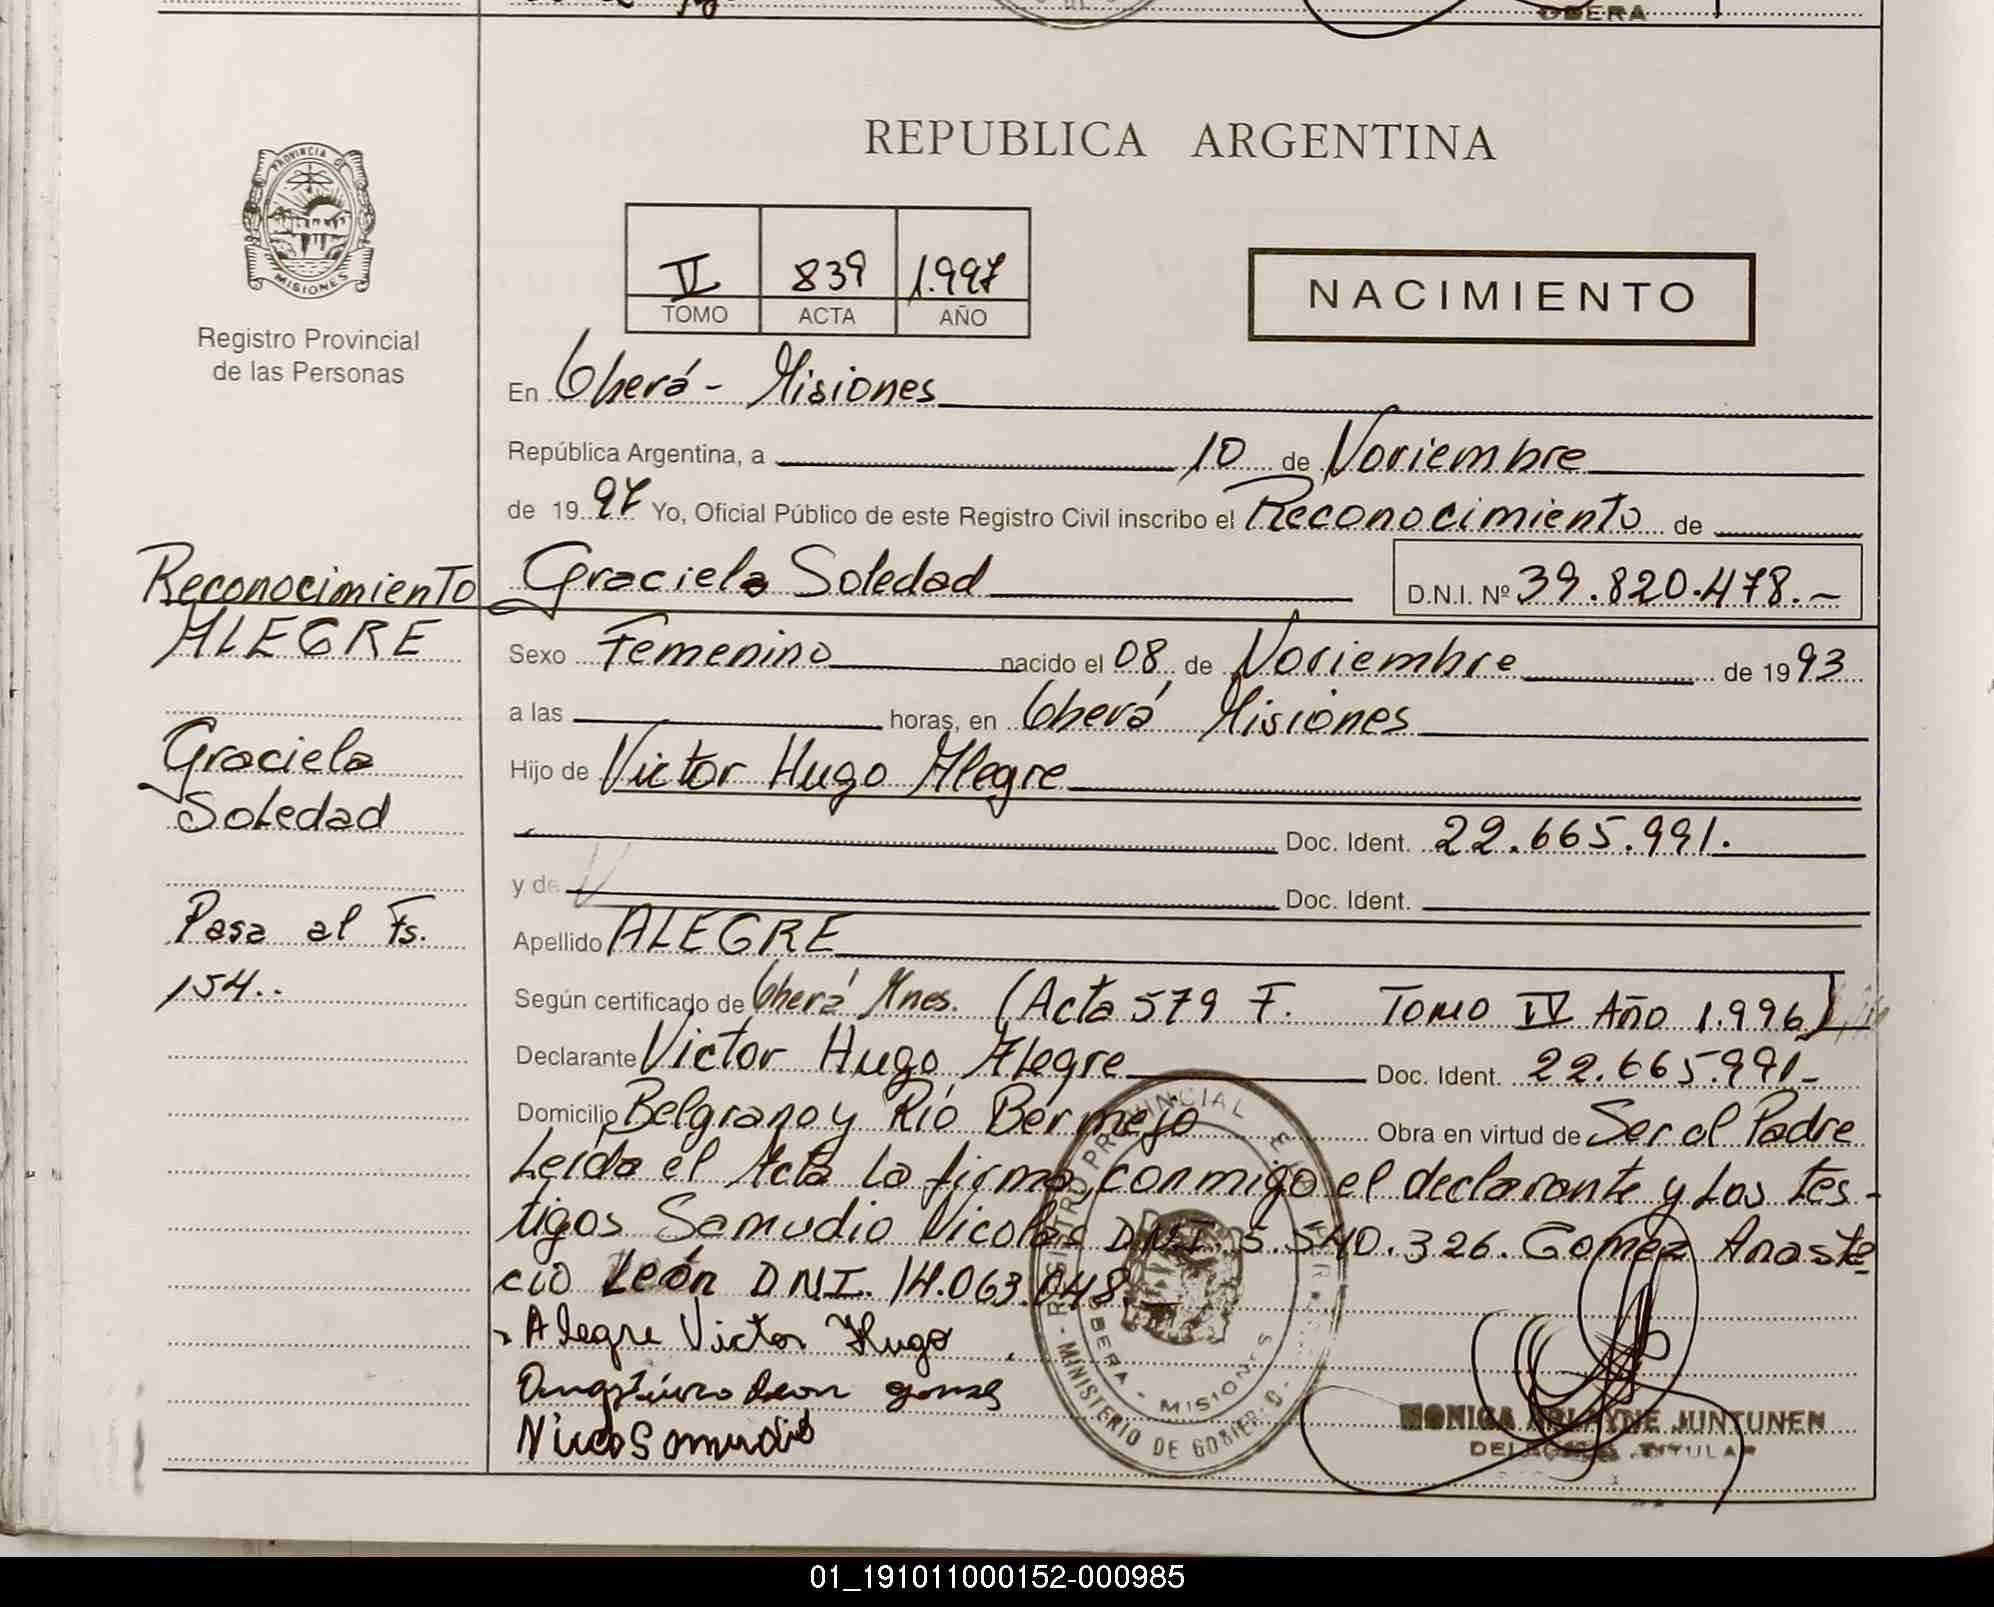 OBERA
REPUBLICA ARGENTINA
PROVINCIA DE
MISIONES
Registro Provincial
de las Personas
V 839 1.997
TOMO ACTA AÑO
NACIMIENTO
En Oberá - Misiones
República Argentina, a 10 de Noviembre
de 1997 Yo, Oficial Público de este Registro Civil inscribo el Reconocimiento de
Graciela Soledad D.N.I. Nº 39.820.478.-
Reconocimiento
ALEGRE
Graciela
Soledad
Pasa al Fs.
154..
Sexo Femenino nacido el 08 de Noviembre de 1993
a las horas, en Oberá Misiones
Hijo de Victor Hugo Alegre
Doc. Ident. 22.665.991.
y de Doc. Ident.
Apellido ALEGRE
Según certificado de Oberá Mnes. (Acta 579 F. Tomo IV Año 1.996)
Declarante Victor Hugo Alegre Doc. Ident. 22.665.991-
Domicilio Belgrano y Río Bermejo Obra en virtud de Ser el Padre
Leída el Acta la firma, conmigo el declarante y los tes-
tigos Samudio Nicolás D.N.I. 5.540.326. Gomez Anasta
cio León DNI. 14.063.048.-
Alegre Victor Hugo
Nico Samudio
REGISTRO PROVINCIAL
OBERA - MISIONES
MINISTERIO DE GOBIERNO
MONICA ARLAYNE JUNTUNEN
DELEGADA TITULAR
01_191011000152-000985